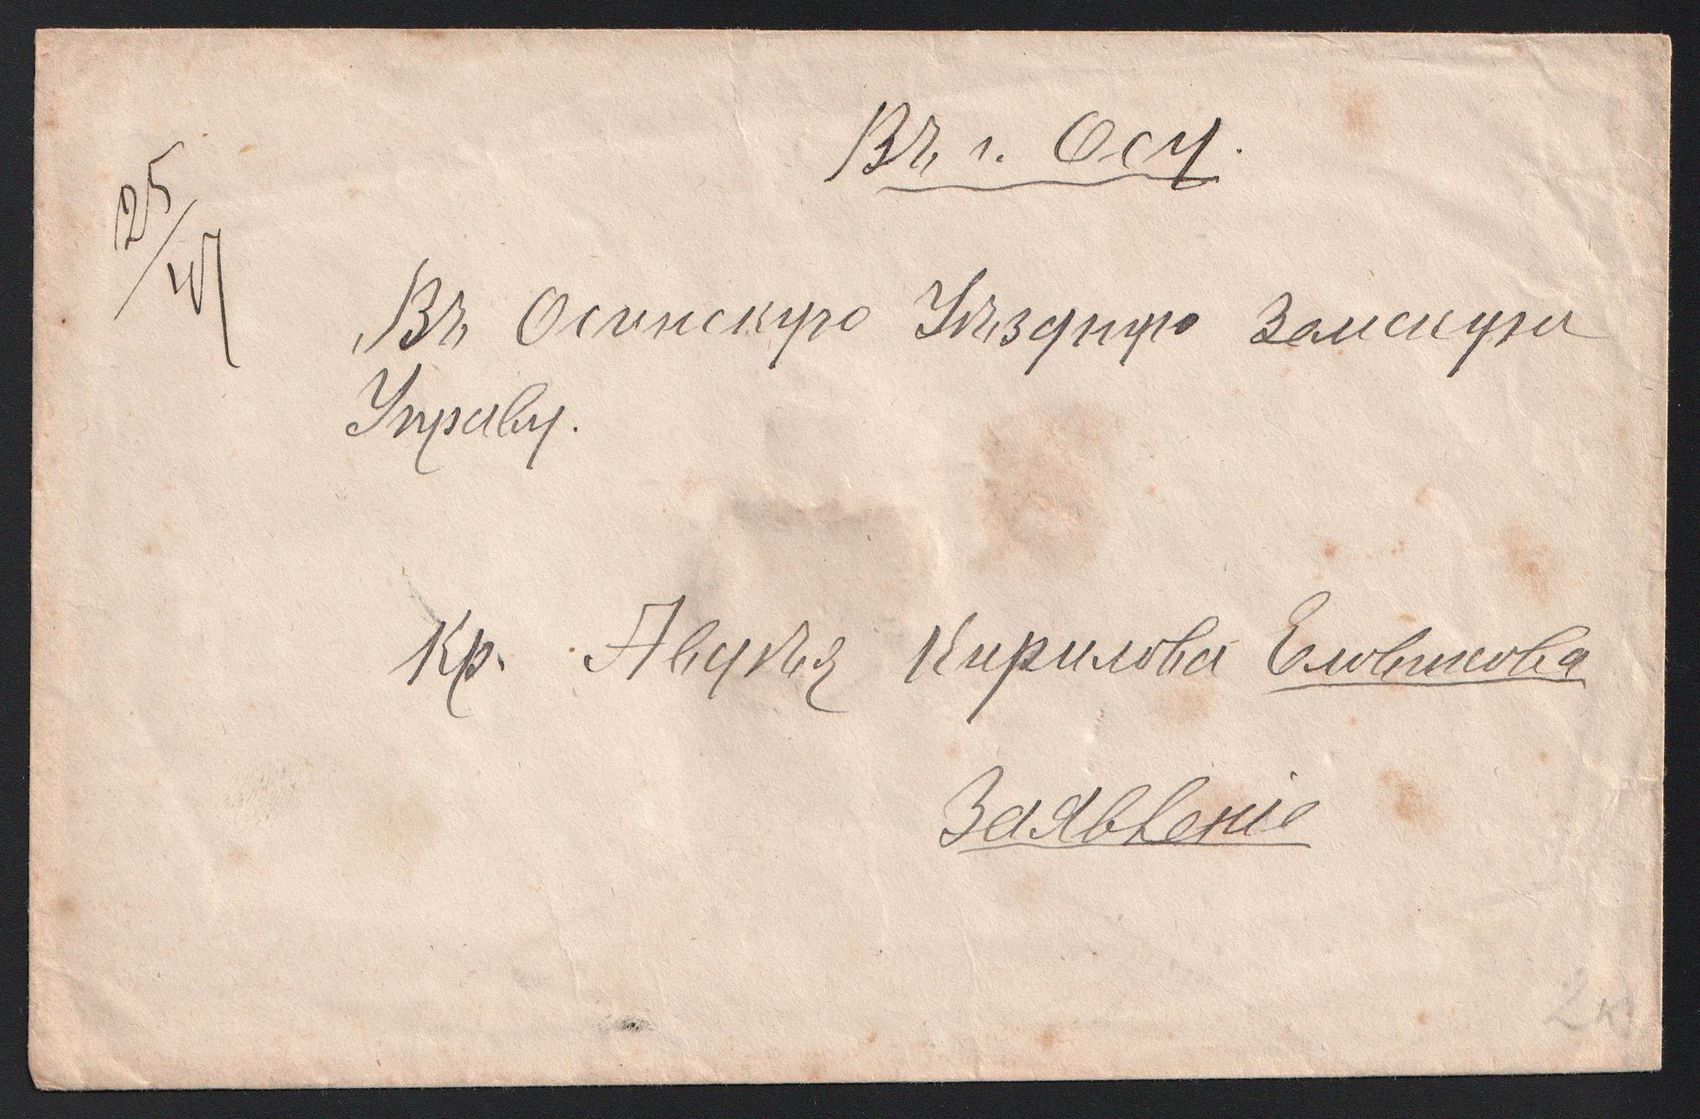 Въ г. Осу.
25/IV
Въ Осинскую Уѣздную Земскую
Управу.
Кр. Кирилова Еловикова
Заявленіе
2к